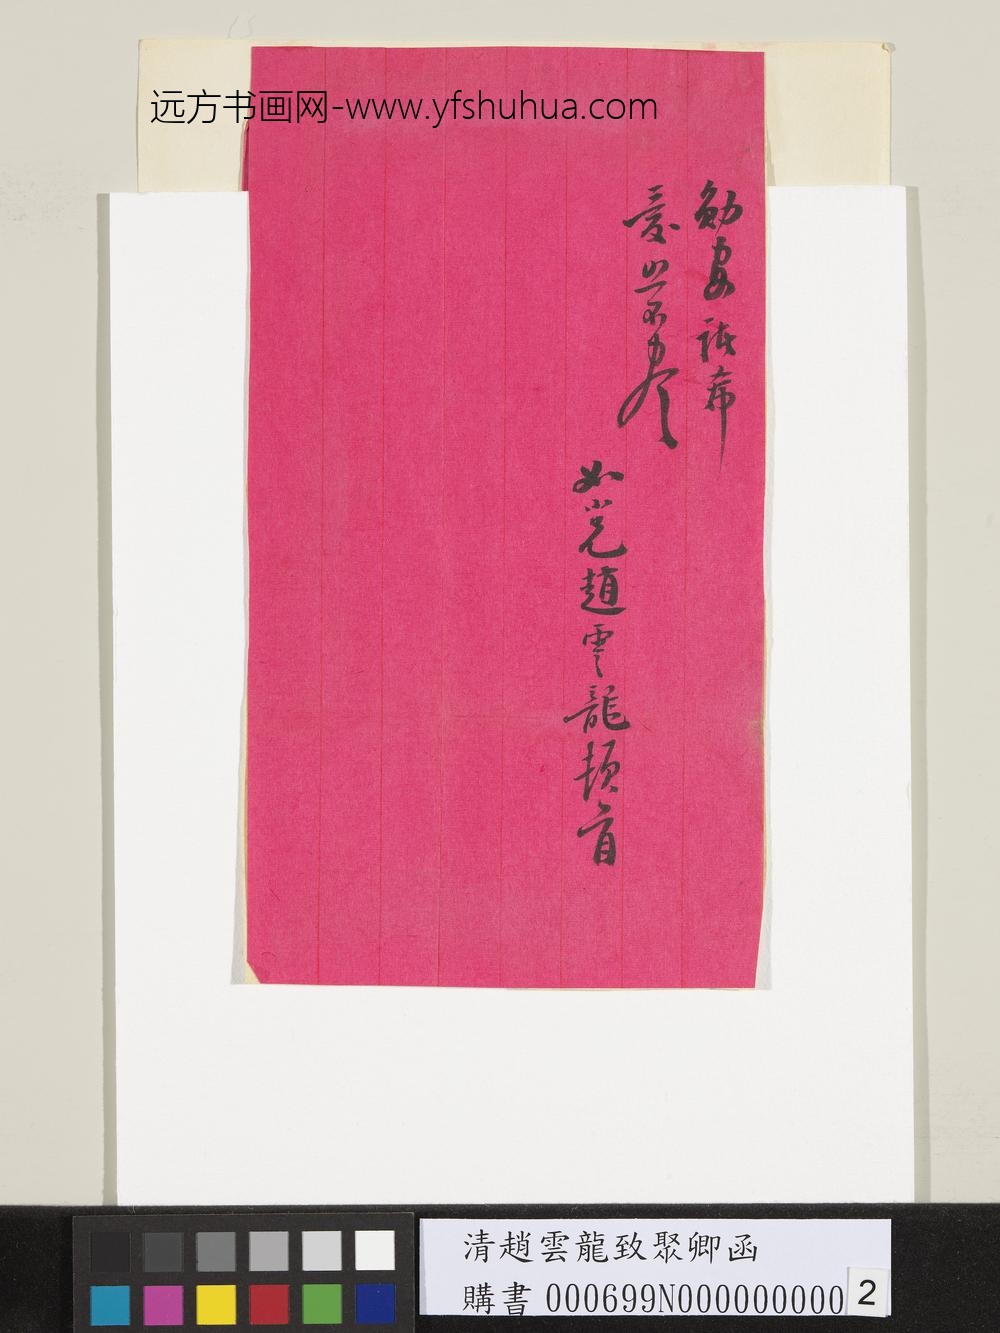 远方书画网-www.yfshuhua.com
勛安祗希
愛照不盡
如小兄趙雲龍頓首
清趙雲龍致聚卿函
購書 000699N000000000 2